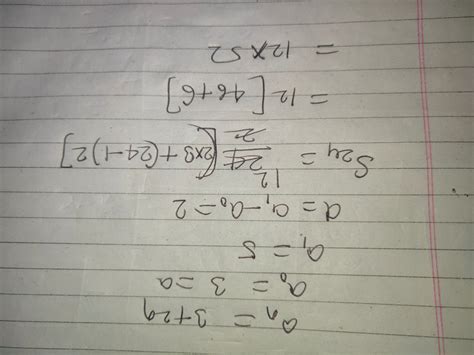 aₙ = 3+2n
a₀ = 3 = a
a₁ = 5
d = a₁ - a₀ = 2
12
S₂₄ = 24/2 [2×3+(24-1)2]
= 12 [46+6]
= 12×52